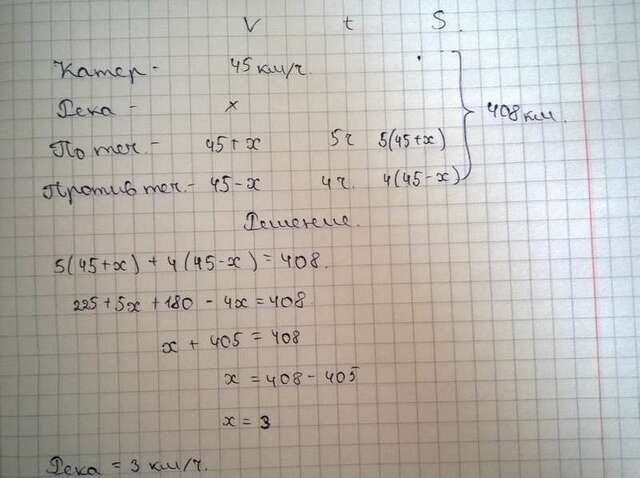 V t S.
Катер - 45 км/ч.
Река - x
По теч. - 45+x 5ч 5(45+x)
Против теч. - 45-x 4ч. 4(45-x)
408 км.
Решение.
5(45+x) + 4(45-x) = 408.
225 + 5x + 180 - 4x = 408
x + 405 = 408
x = 408 - 405
x = 3
Река = 3 км/ч.